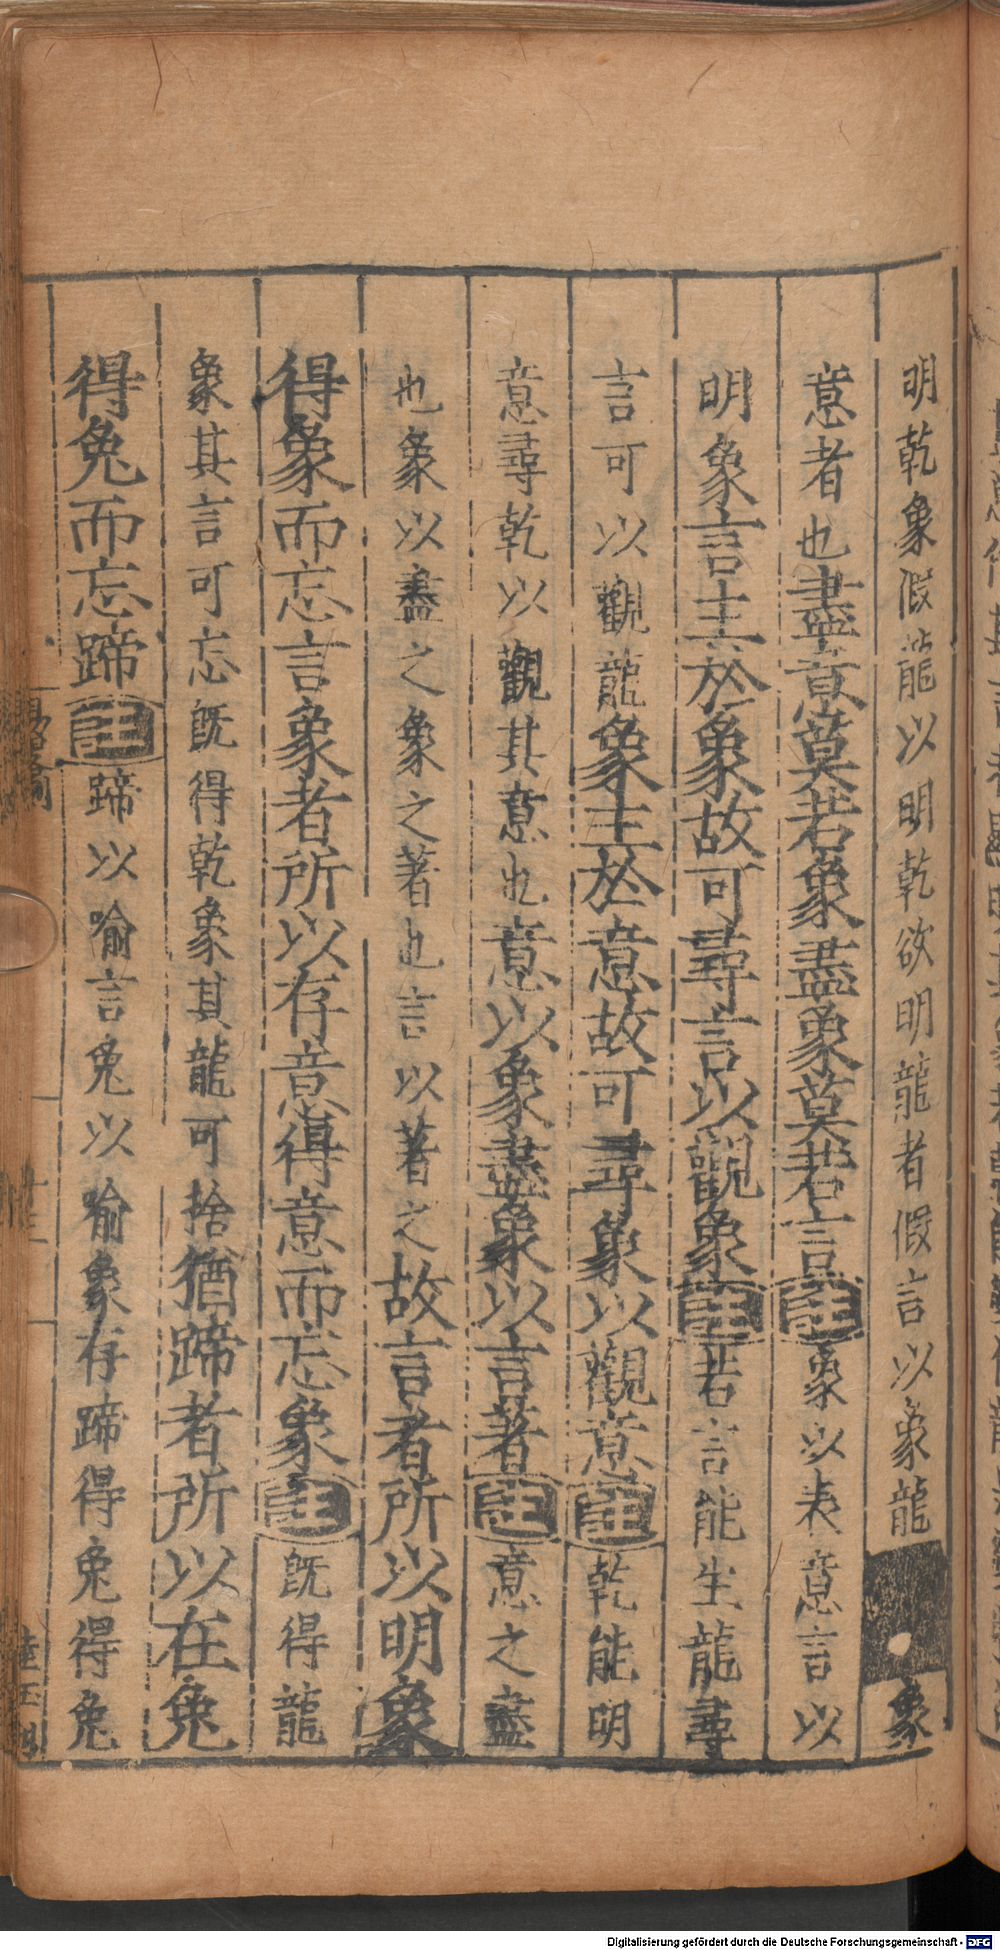 明乾象假龍以明乾欲明龍者假言以象龍象
意者也盡意莫若象盡象莫若言註象以表意言以
明象言主於象故可尋言以觀象註若言能生龍尋
言可以觀龍象主於意故可尋象以觀意註乾能明
意尋乾以觀其意也意以象盡象以言著註意之盡
也象以盡之象之著也言以著之故言者所以明象
得象而忘言象者所以存意得意而忘象註旣得龍
象其言可忘旣得乾象其龍可捨猶蹄者所以在兔
得兔而忘蹄註蹄以喻言兔以喻象存蹄得兔得兔
Digitalisierung gefördert durch die Deutsche Forschungsgemeinschaft - DFG